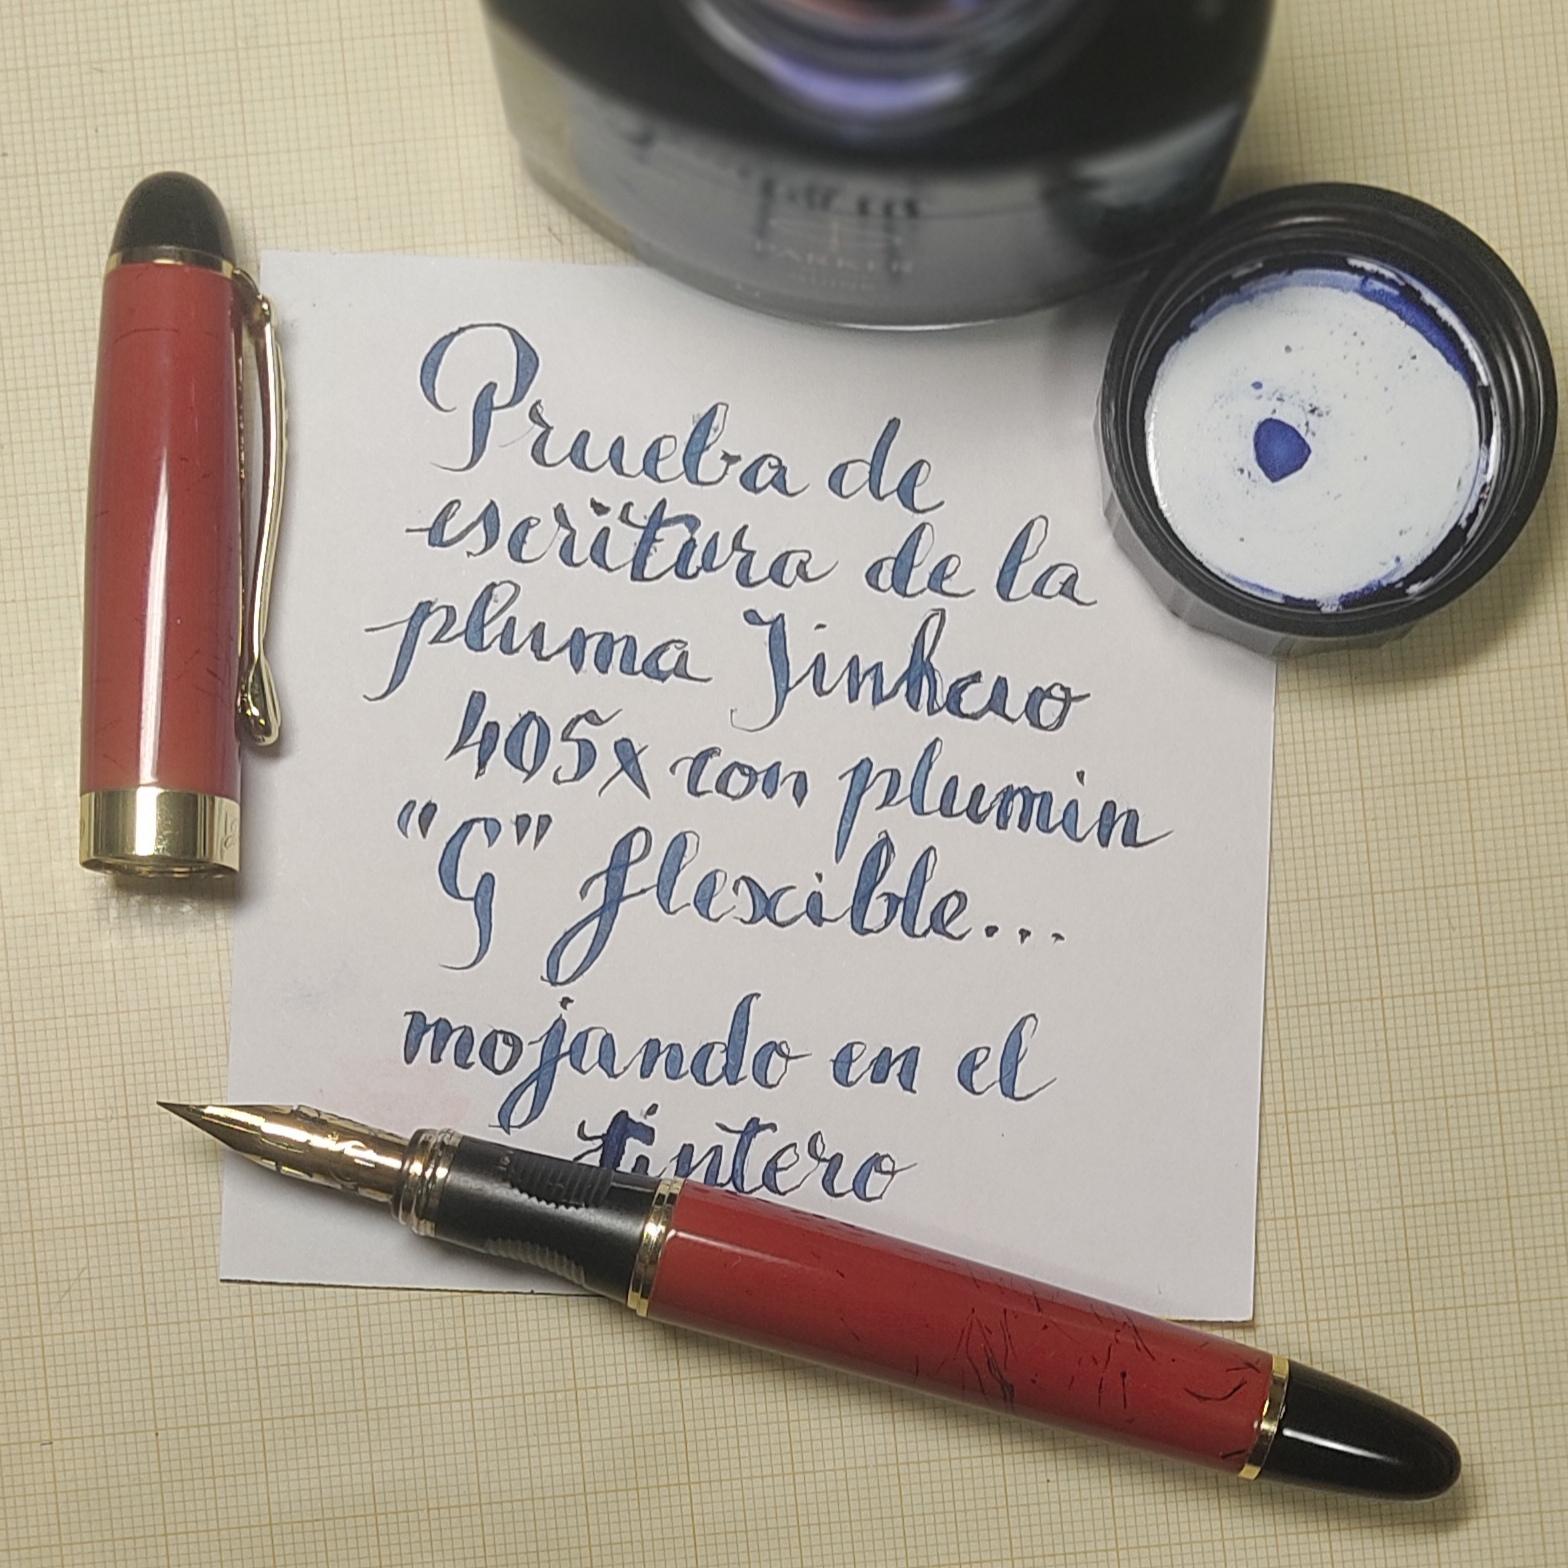 PARKER
Prueba de
escritura de la
pluma Jinhao
405x con plumin
"G" flexible...
mojando en el
tintero